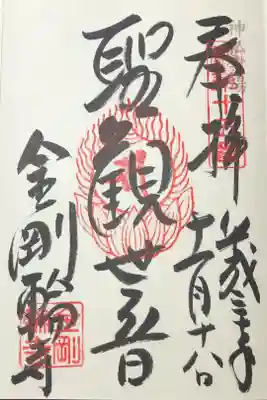 奉拝
平成三十年
十一月十八日
聖観世音
金剛輪寺